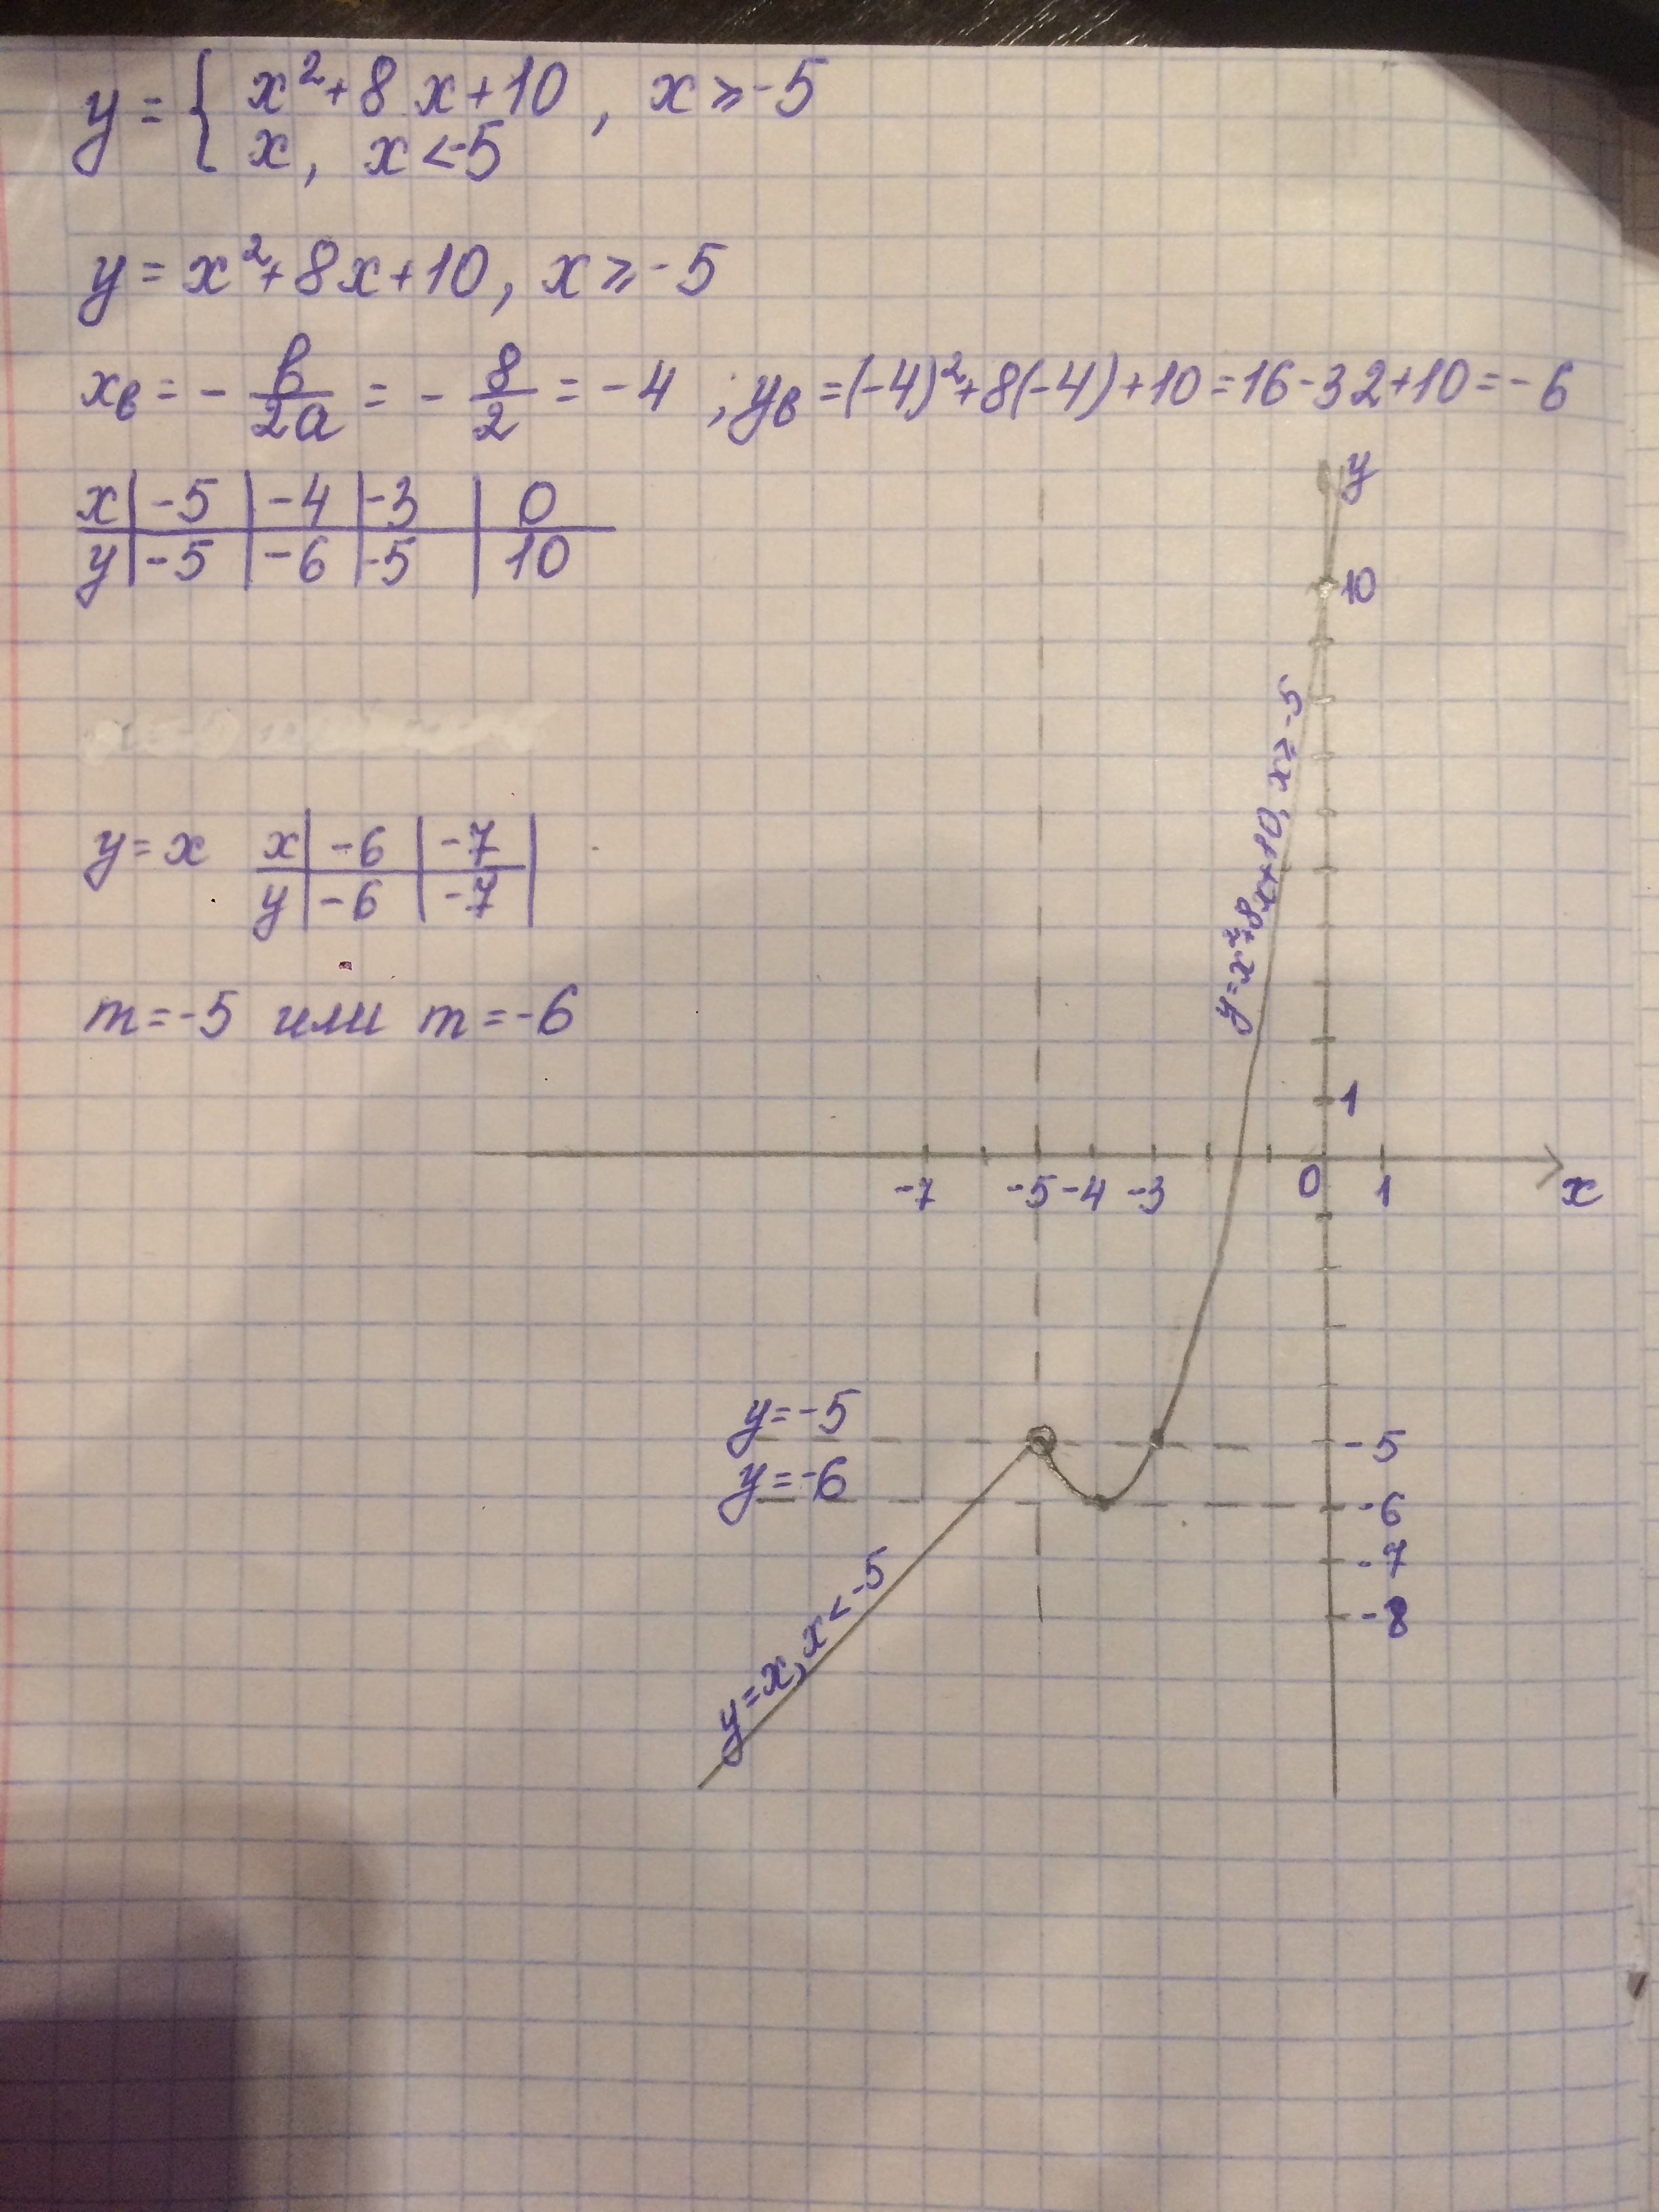 y = { x²+8x+10, x ≥ -5
x, x < -5
y = x²+8x+10, x ≥ -5
xв = - в/2а = - 8/2 = -4 ; yв = (-4)²+8(-4)+10 = 16-32+10 = -6
x | -5 | -4 | -3 | 0
y | -5 | -6 | -5 | 10
y = x
x | -6 | -7 |
y | -6 | -7 |
m = -5 или m = -6
y
10
y = x²+8x+10, x ≥ -5
1
-7 -5 -4 -3 0 1 x
y = -5
-5
y = -6
-6
-7
-8
y = x, x < -5